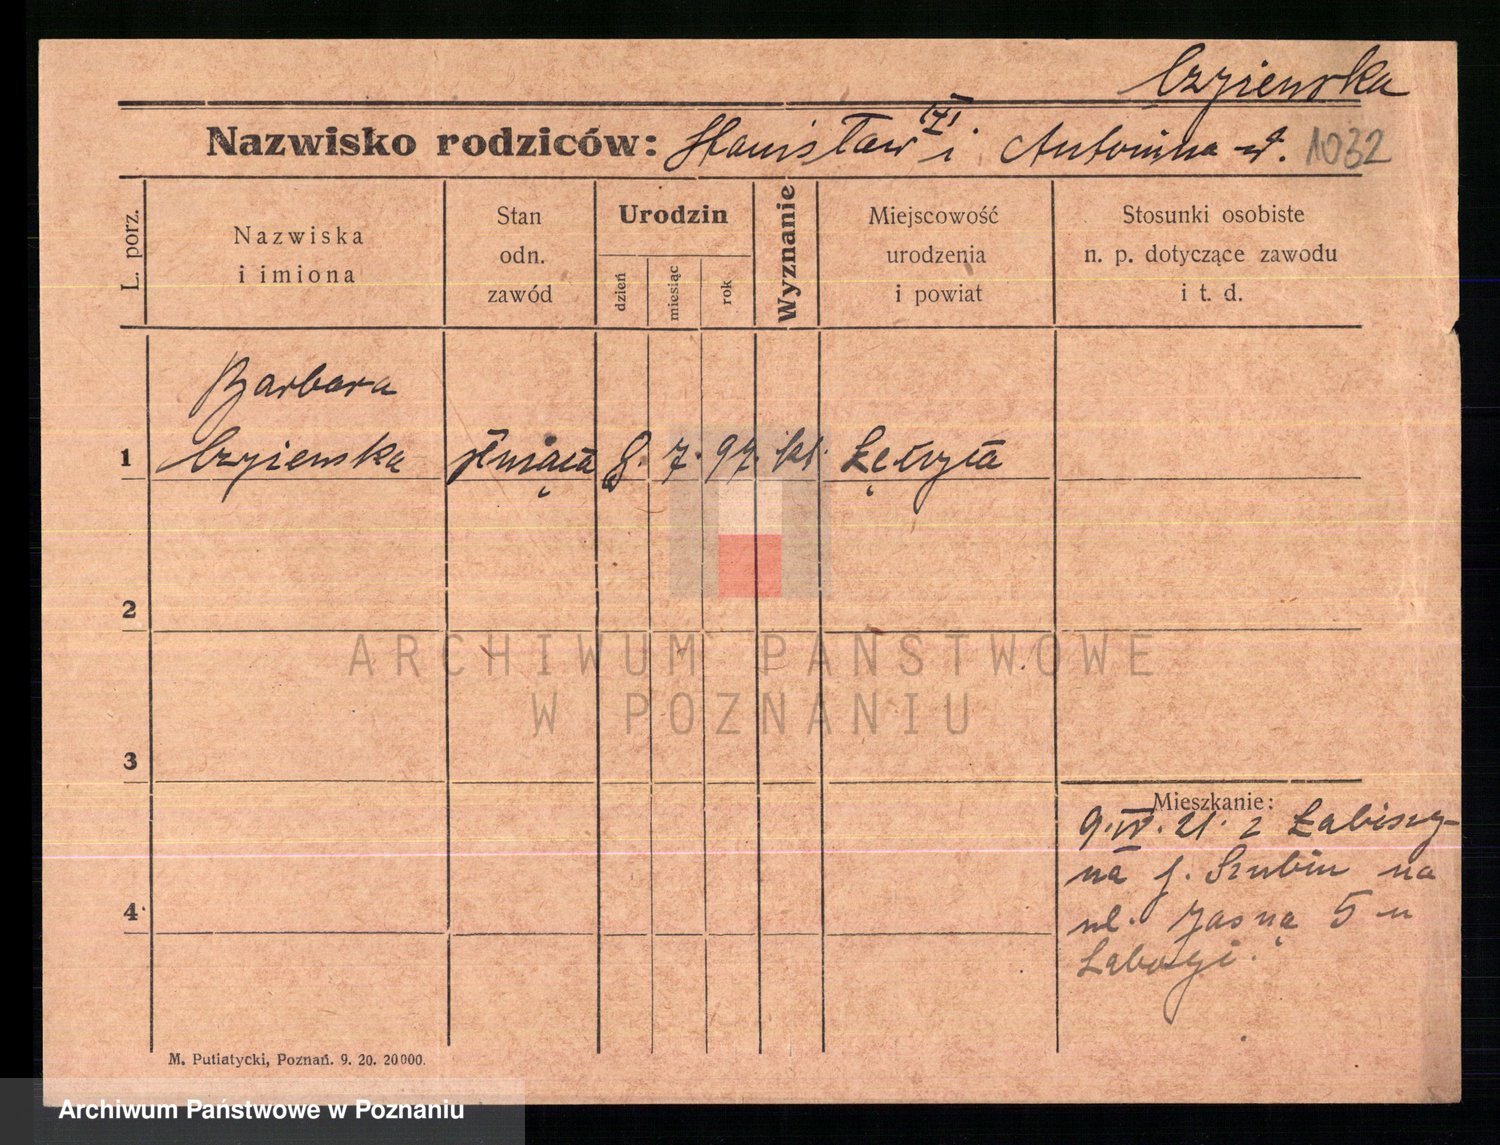 Czyiewska
Nazwisko rodziców: Stanisław i Antonina 1032
L. porz.
Nazwiska
i imiona
Stan
odn.
zawód
Urodzin
dzień
miesiąc
rok
Wyznanie
Miejscowość
urodzenia
i powiat
Stosunki osobiste
n. p. dotyczące zawodu
i t. d.
Barbara
1 Czyiewska służąca 8. 7. 97. kt.
2
ARCHIWUM PAŃSTWOWE
W POZNANIU
3
Mieszkanie:
9. IV. 21. z Łabiszy-
na p. Szubin na
ul. Jasną 5 u
4
M. Putiatycki, Poznań. 9. 20. 20000.
Archiwum Państwowe w Poznaniu